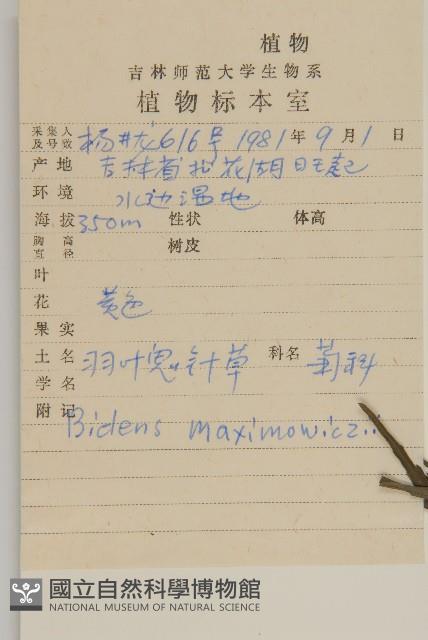 植物
吉林师范大学生物系
植物标本室
采集人及号数 杨 616号 1981年9月1日
产地 吉林省松花湖旺起
环境 水边湿地
海拔 350m 性状 体高
胸高直径 树皮
叶
花 黄色
果实
土名 羽叶鬼针草 科名 菊科
学名
附记 Bidens maximowicziii
國立自然科學博物館
NATIONAL MUSEUM OF NATURAL SCIENCE